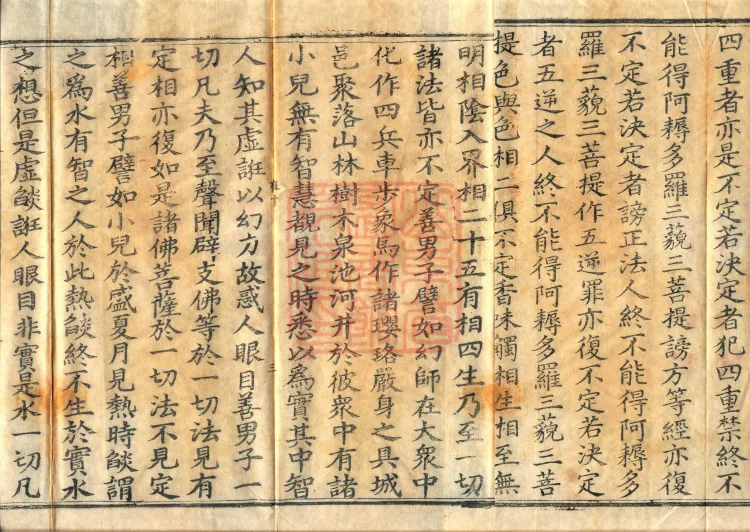 四重者亦是不定若決定者犯四重禁終不
能得阿耨多羅三藐三菩提謗方等經亦復
不定若決定者謗正法人終不能得阿耨多
羅三藐三菩提作五逆罪亦復不定若決定
者五逆之人終不能得阿耨多羅三藐三菩
提色與色相二俱不定香味觸相生相至無
明相陰入界相二十五有相四生乃至一切
諸法皆亦不定善男子譬如幻師在大衆中
化作四兵車步象馬作諸瓔珞嚴身之具城
邑聚落山林樹木泉池河井於彼衆中有諸
小兒無有智慧覩見之時悉以爲實其中智
人知其虛誑以幻力故惑人眼目善男子一
切凡夫乃至聲聞辟支佛等於一切法見有
定相亦復如是諸佛菩薩於一切法不見定
相善男子譬如小兒於盛夏月見熱時燄謂
之爲水有智之人於此熱燄終不生於實水
之想但是虛燄誑人眼目非實是水一切凡
三